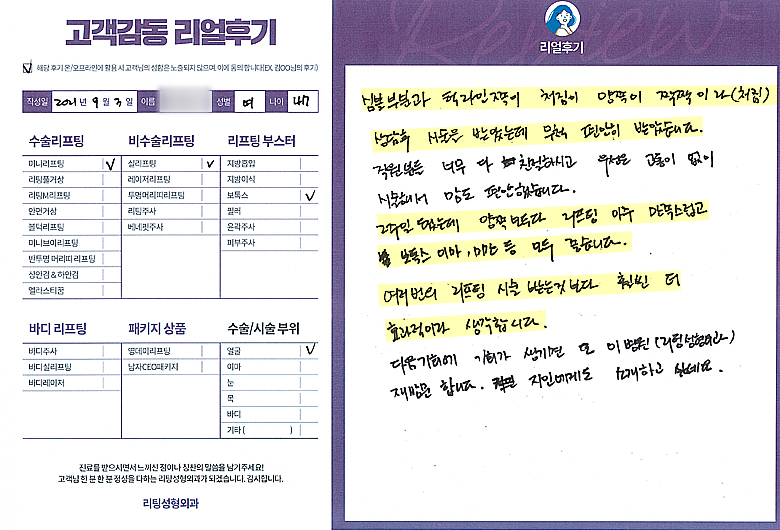 고객감동 리얼후기
해당 후기 온/오프라인에 활용 시 고객님의 성함은 노출되지 않으며, 이에 동의 합니다(EX. 김OO님의 후기)
작성일 2021년 9월 3일 이름 성별 여 나이 47
수술리프팅 비수술리프팅 리프팅 부스터
미니리프팅 ✓ 실리프팅 ✓ 지방흡입
리팅풀거상 레이저리프팅 지방이식
리팅M리프팅 투명머리띠리프팅 보톡스 ✓
안면거상 리팅주사 필러
볼덕리프팅 베네핏주사 윤곽주사
미니브이리프팅 피부주사
반투명 머리띠 리프팅
상안검 & 하안검
엘라스티꿈
바디 리프팅 패키지 상품 수술/시술 부위
바디주사 영데이리프팅 얼굴 ✓
바디실리프팅 남자CEO패키지 이마
바디레이저 눈
목
바디
기타 ( )
진료를 받으시면서 느끼신 점이나 칭찬의 말씀을 남기주세요!
고객님 한 분 한 분 정성을 다하는 리팅성형외과가 되겠습니다. 감시합니다.
리팅성형외과
리얼후기
심볼부분과 턱라인쪽이 처짐이 양쪽이 짝짝이라(처짐)
상담후 시술은 받았는데 무척 편안히 받았습니다.
직원분들 너무 다 친절하시고 우선은 고통이 없이
시술해서 맘도 편안했습니다.
2주일 됐는데 양쪽 보두다 리프팅 아주 만족스럽고
보톡스 이마, 미간 등 모두 좋습니다.
여러번의 리프팅 시술 받는것보다 훨씬 더
효과적이라 생각합니다.
다음기회에 기회가 생기면 또 이병원(리팅성형외과)
재방문 합니다. 주변 지인에게도 소개하고 싶네요.